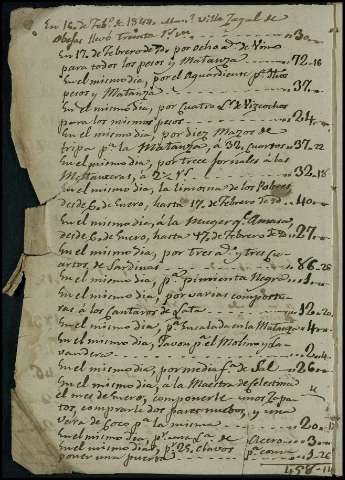 En 16 de Feb.º de 1844 Man.l Villa Zagal de
Obejas llevó Treinta r.s vn - - - 30
En 17 de Febrero de Yd. por ocho ad.s de Vino
para todos los pesos y Matanza - - - 72-16
En el mismo dia, por el Aguardiente p.a dhos
pesos y Matanza - - - 37
En el mismo dia, por Cuatro L.s de Vizcochos
para los mismos pesos - - - 24
En el mismo dia, por diez Mazos de
tripa p.a la Matanza, á 32, Cuartos - 37-22
En el mismo dia, por trece jornales á las
Matanceras, á 2½ r.s - - - 32-18
En el mismo dia, la limosna de los Pobres
desde 6, de Enero, hasta 17, de Febrero de Yd - 40
En el mismo dia, á la Muger q.e Amasa,
desde 6, de Enero, hasta 17, de Febrero de Yd - 27
En el mismo dia, por tres ad.s y tres Cu-
artos, de Sardinas - - - 86-26
En el mismo dia, p.a pimienta Negra - 1
En el mismo dia, por varias compostu-
ras á los Cantaros de Lata - - - 12-20
En el mismo dia, p.a Ensalada en la Matanza - 4
En el mismo dia, Javon p.a el Molino y La-
vandera - - - 2
En el mismo dia, por media f.a de Sal - 26
En el mismo dia, á la Maestra de Celestina
el mes de Enero, componerle unos Zapa-
tos, comprarle dos pares nuebos, y una
vara de Coco p.a la misma - - - 20
En el mismo dia, p.r una L.a de Acero - 3
En el mismo dia, p.r 25, Clavos p.a com-
poner una puerta - - - 1-26
458-